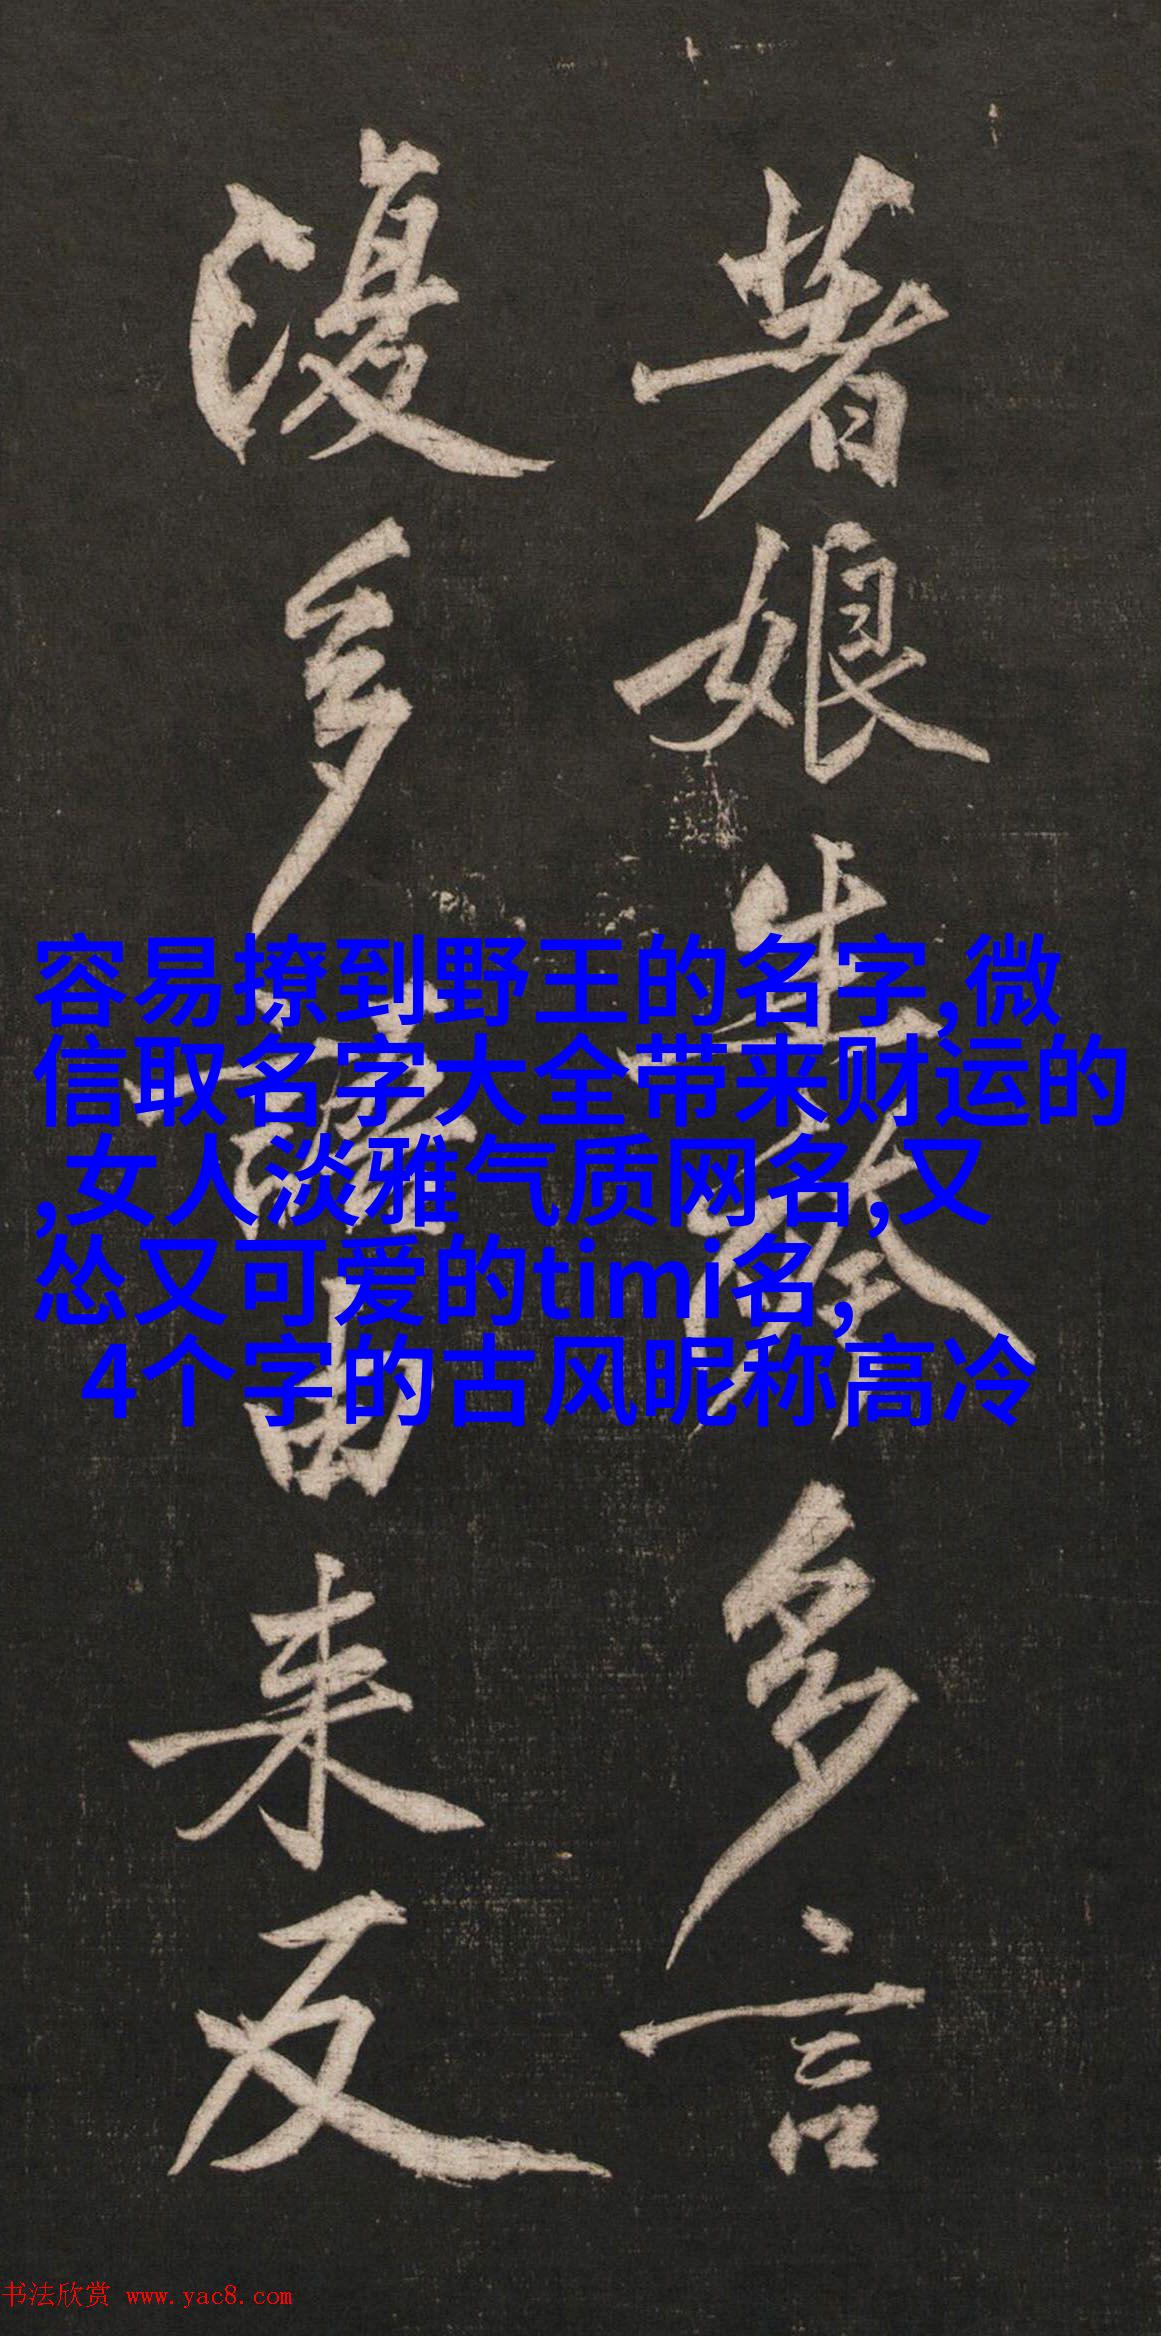 著娘生多言
復多語由来反
容易撩到野王的名字,微
信取名字大全带来财运的
,女人淡雅气质网名,又
怂又可爱的timi名,
4个字的古风昵称高冷
书法欣赏 www.yac8.com